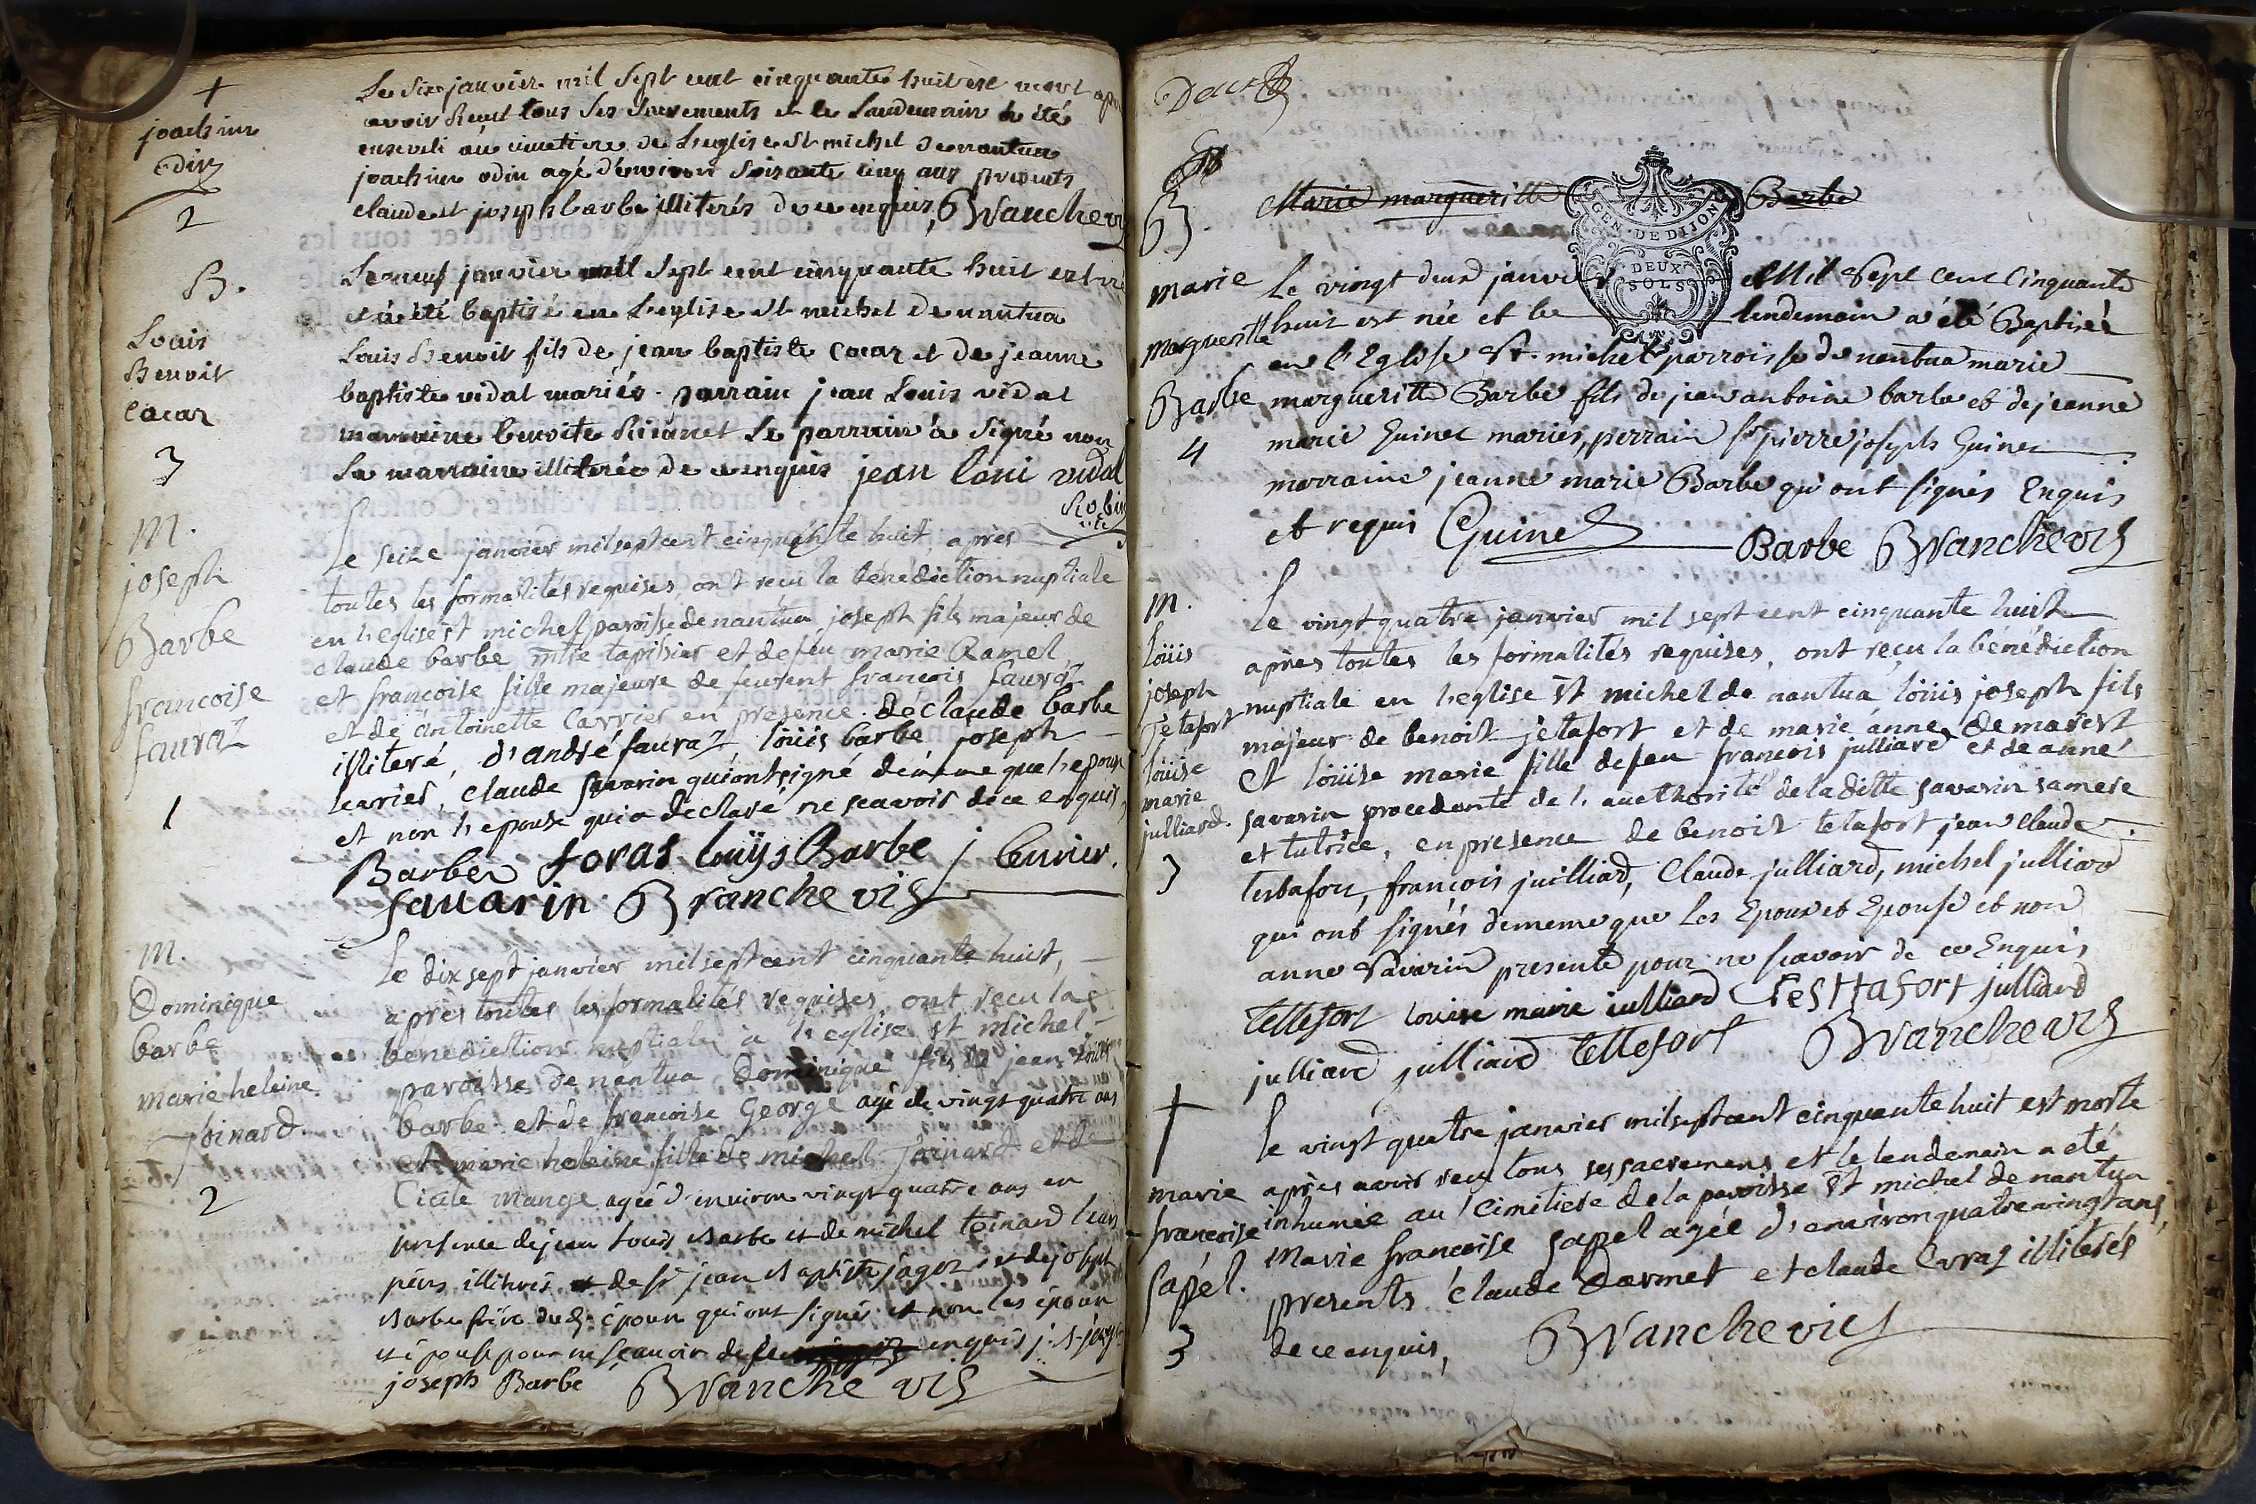 +
joachim
odin
2
Le six janvier mil sept cent cinquante huit est mort apres
avoir receu tous ses sacrements et le landemain a été
enseveli au cimetiere de l'eglise st michel de nantua
joachim odin agé d'environ soixante cinq ans presents
claude et joseph barbe illiterés de ce enquis, Branchevis
B.
Louis
Benoit
Cocar
3
Le neuf janvier mil sept cent cinquante huit est né
et a été baptisé en l'eglise st michel de nantua
Louis Benoit fils de jean baptiste Cocar et de jeanne
baptiste vidal mariés. parrain jean Louis vidal
marraine benoite le parrain a signé non
la marraine illiterée de ce enquis jean loui vidal
Robin
vic
M.
joseph
Barbe
francoise
fauraz
1
Le seize janvier mil sept cent cinquante huit, après
toutes les formalités requises, ont recu la bénédiction nuptiale
en l'eglise st michel paroisse de nantua joseph fils majeur de
claude barbe mtre tapissier et de feu marie Ramel
et francoise fille majeure de feu francois fauraz
et de antoinette Carrier en presence de claude barbe
illiteré, d'andré fauraz, loüis barbe joseph
levrier, claude savarin qui ont signé de meme que l'epoux
et non l'epouse qui a declaré ne scavoir de ce enquis,
Barbe foras louys Barbe j levrier.
favarin Branchevis
M.
Dominique
barbe
marie heleine
joinard
2
Le dix sept janvier mil sept cent cinquante huit,
apres toutes les formalités requises, ont recu la
benediction nuptiale a l'eglise st michel
paroisse de nantua, Dominique fils de jean louis
barbe et de francoise George agé de vingt quatre ans
et marie heleine fille de michel joinard et de
Cicile Mange agée d'environ vingt quatre ans en
presence de jean Louis Barbe et de michel joinard leurs
peres illiterés, de sr jean Baptiste jagoz et de joseph
Barbe frère dud. époux qui ont signé et non les époux
et épouse pour ne scavoir de ce enquis j. B. jagoz
joseph Barbe Branchevis
Deux
B.
marie
margueritte
Barbe
4
Marie margueritte Barbe
GEN. DE DIJON
DEUX
SOLS
Le vingt deux janvier Mil sept cent cinquante
huit est née et le lendemain a été Baptisée
en l'Eglise St. michel parroisse de nantua marie
margueritte Barbe fils de jean antoine barbe et de jeanne
marie Guinet mariés, perrain sr pierre joseph Guinet
marraine jeanne marie Barbe qui ont signés Enquis
et requis Guinet Barbe Branchevis
M.
loüis
joseph
jetafort
loüise
marie
julliard.
3
Le vingt quatre janvier mil sept cent cinquante huit
après toutes les formalités requises, ont reçu la bénédiction
nuptiale en l'eglise st michel de nantua loüis joseph fils
majeur de benoit jetafort et de marie anne demarest
et loüise marie fille de feu francois julliard et de anne
savarin procedante de l'aucthorité de la ditte savarin sa mere
et tutrice, en presence de benoit tetafort jean Claude
testafort, françois juilliard, Claude julliard, michel julliard
qui ont signés de meme que les Epoux et Epouse et non
anne Savarin presente pour ne scavoir de ce Enquis
tettefort louise marie julliard Testtafort julliard
julliard julliard tettefort Branchevis
+
marie
francoise
sapél.
3
Le vingt quatre janvier mil sept cent cinquante huit est morte
après avoir receu tous ses sacremens et le lendemain a eté
inhumée au cimitiere de la paroisse st michel de nantua
Marie francoise sappel agée d'environ quatre vingt ans,
presents Claude Darmet et claude Carraz illiterés
de ce enquis, Branchevis